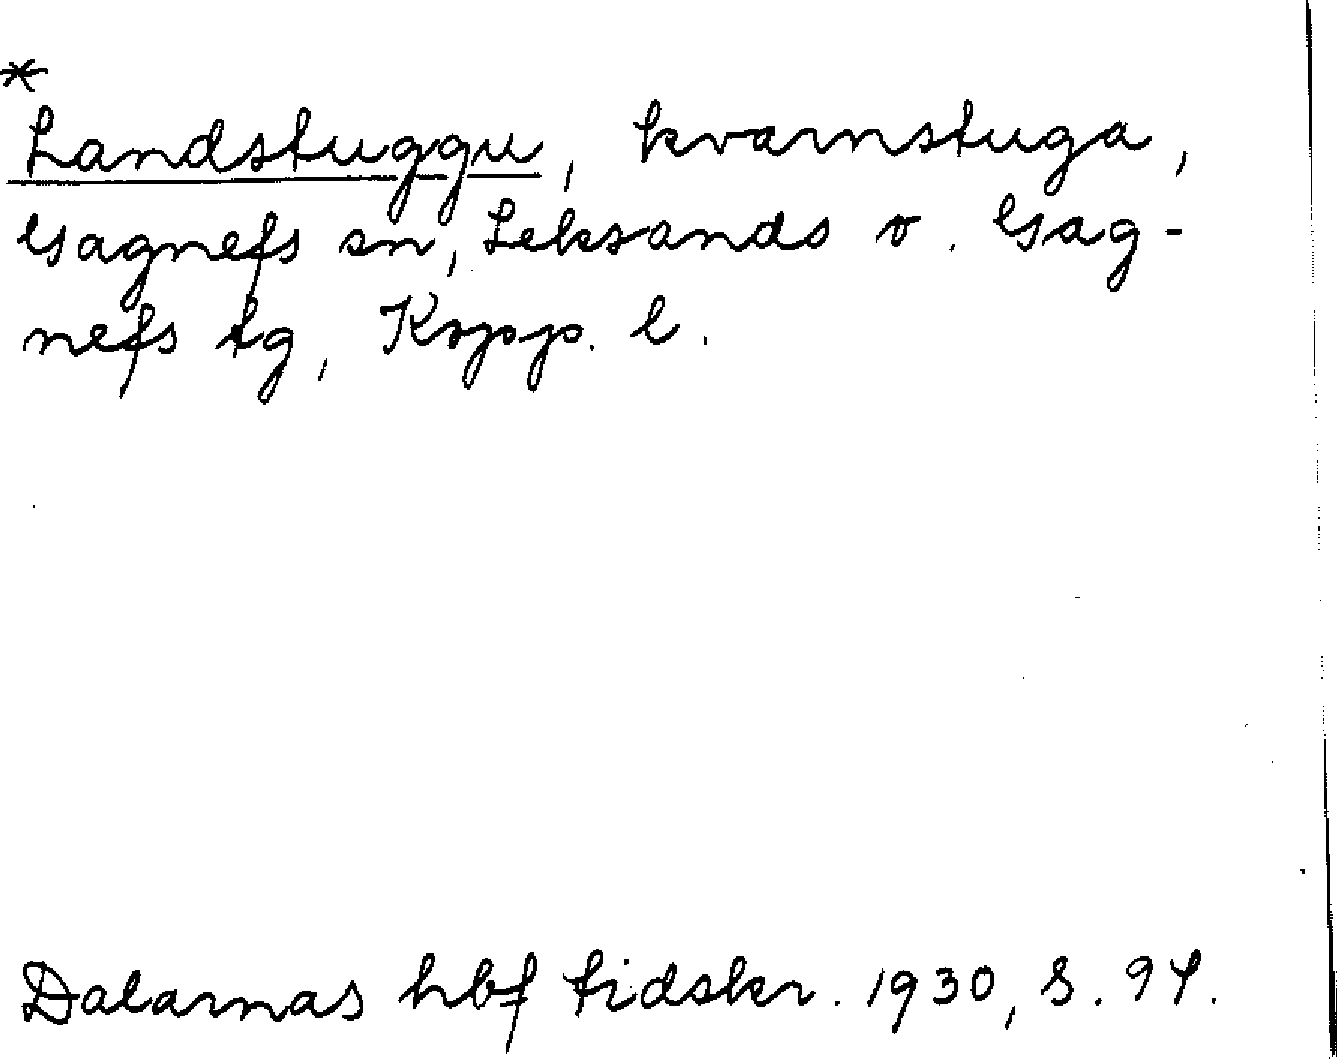 *
Landstuggu, kvarnstuga,
Gagnefs sn, Leksands o. Gag-
nefs tg, Kopp. l.
Dalarnas hbf tidskr. 1930, S. 94.